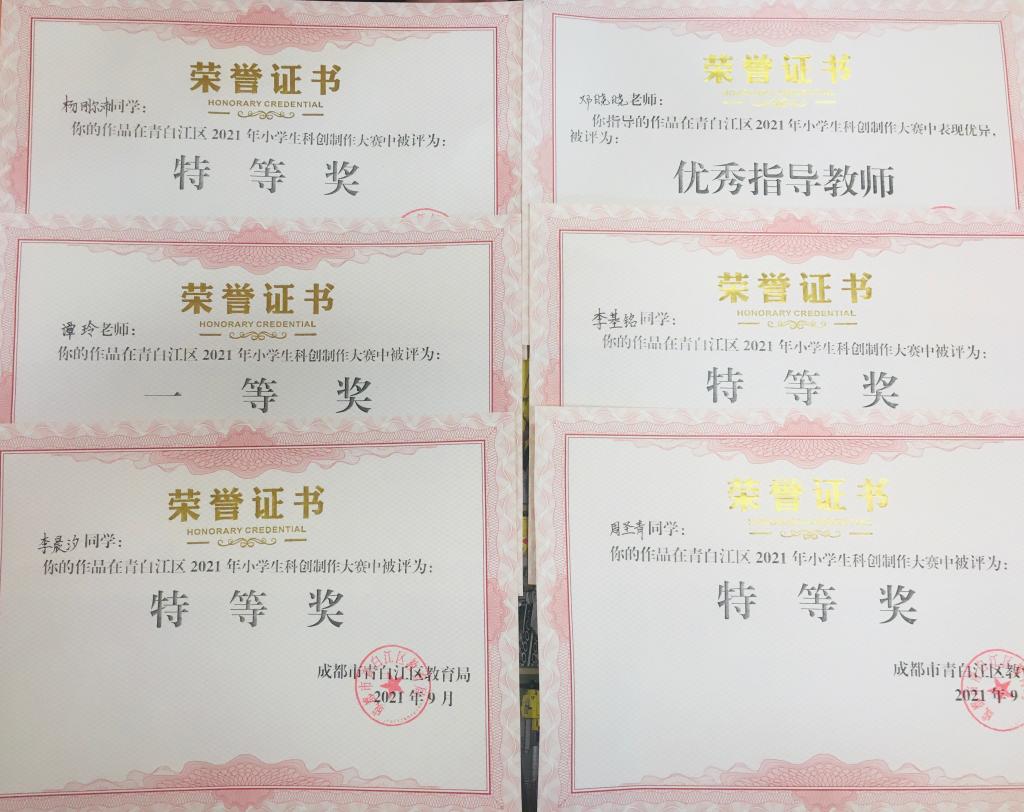 荣誉证书
HONORARY CREDENTIAL
同学：
你的作品在青白江区 2021 年小学生科创制作大赛中被评为：
特等奖
荣誉证书
HONORARY CREDENTIAL
邓晓晓老师：
你指导的作品在青白江区 2021 年小学生科创制作大赛中表现优异，
被评为：
优秀指导教师
荣誉证书
HONORARY CREDENTIAL
谭玲老师：
你的作品在青白江区 2021 年小学生科创制作大赛中被评为：
一等奖
荣誉证书
HONORARY CREDENTIAL
李基铭同学：
你的作品在青白江区 2021 年小学生科创制作大赛中被评为：
特等奖
荣誉证书
HONORARY CREDENTIAL
李晨汐同学：
你的作品在青白江区 2021 年小学生科创制作大赛中被评为：
特等奖
成都市青白江区教育局
2021 年 9 月
荣誉证书
HONORARY CREDENTIAL
周圣青同学：
你的作品在青白江区 2021 年小学生科创制作大赛中被评为：
特等奖
成都市青白江区教
2021 年 9